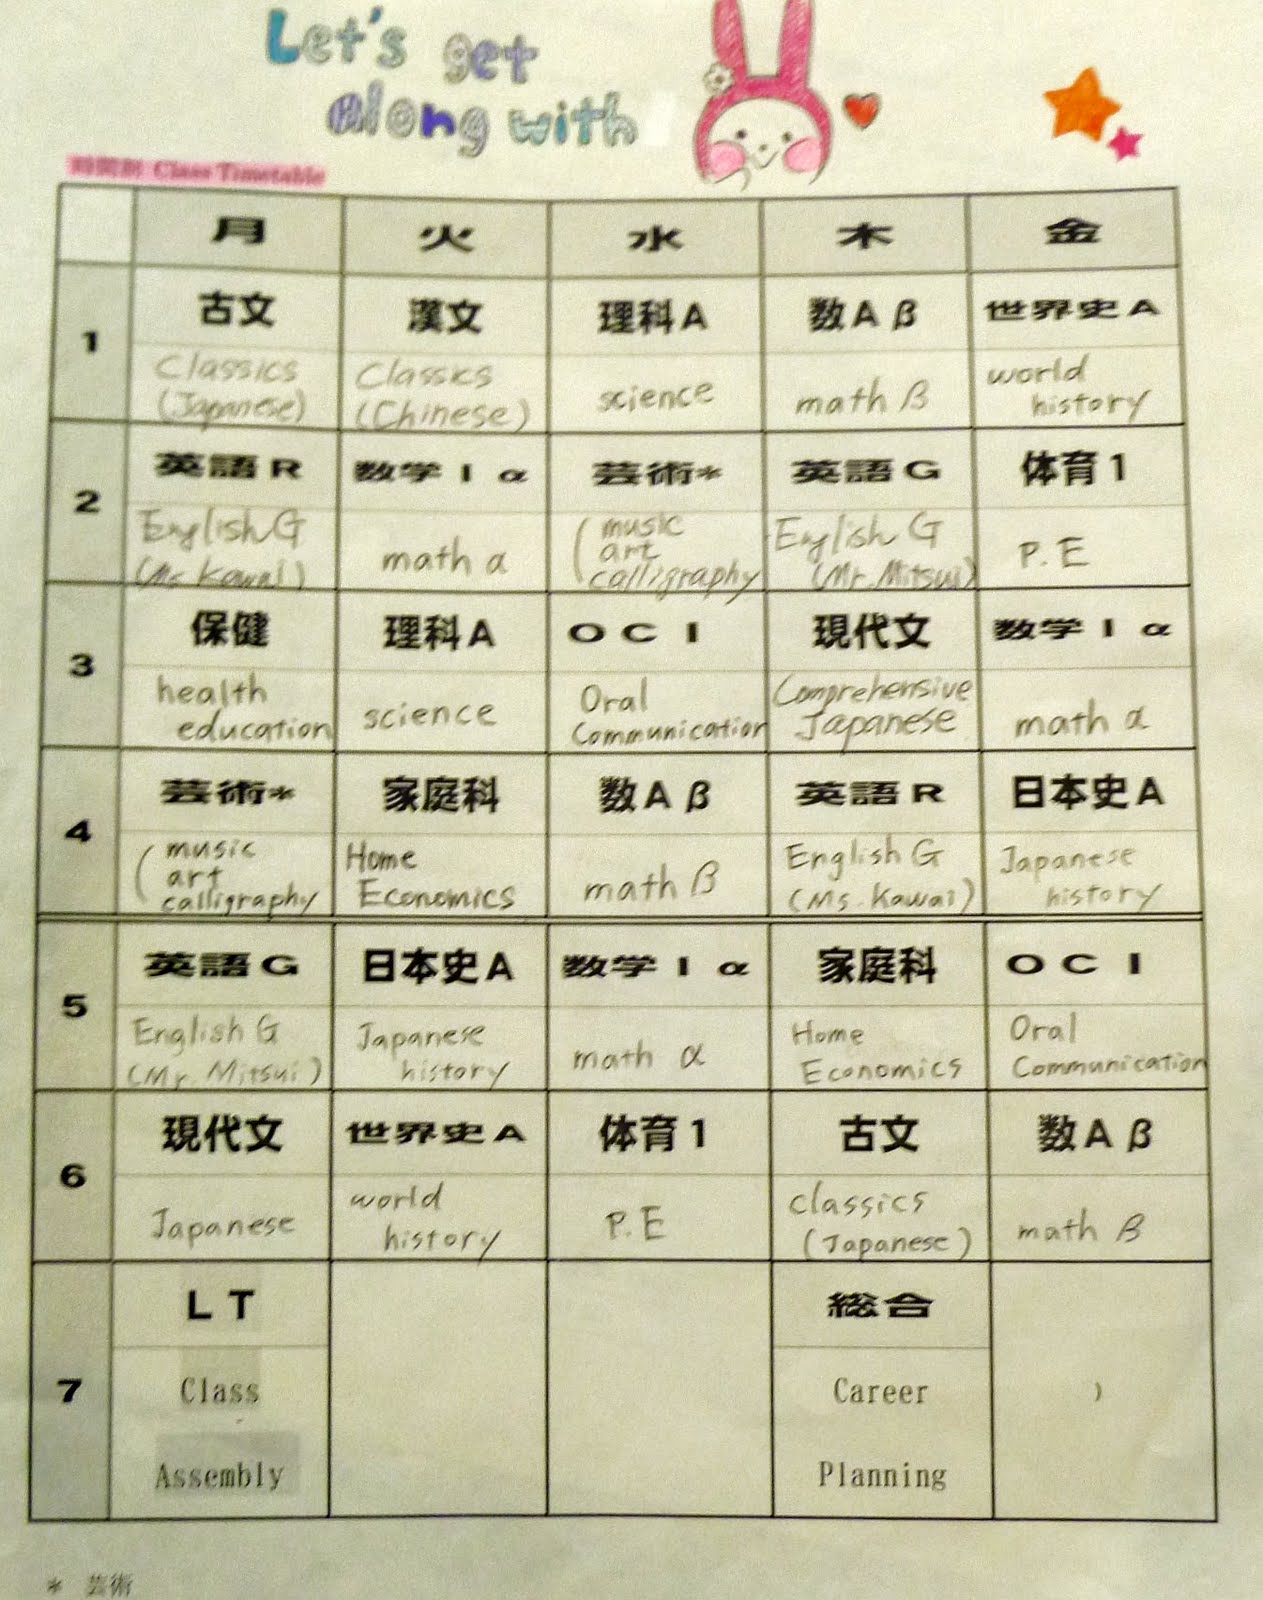 Let's get
along with
時間割 Class Timetable
月 火 水 木 金
1 古文 漢文 理科A 数Aβ 世界史A
Classics Classics science math β world
(Japanese) (Chinese) history
2 英語R 数学Ⅰα 芸術* 英語G 体育1
English G math α (music English G P.E
(Ms Kawai) art (Mr. Mitsui)
calligraphy
3 保健 理科A OCI 現代文 数学Ⅰα
health science Oral Comprehensive math α
education Communication Japanese
4 芸術* 家庭科 数Aβ 英語R 日本史A
(music Home math β English G Japanese
art Economics (Ms. Kawai) history
calligraphy
5 英語G 日本史A 数学Ⅰα 家庭科 OCI
English G Japanese math α Home Oral
(Mr. Mitsui) history Economics Communication
6 現代文 世界史A 体育1 古文 数Aβ
Japanese world P.E classics math β
history (Japanese)
7 LT 総合
Class Career
Assembly Planning
* 芸術